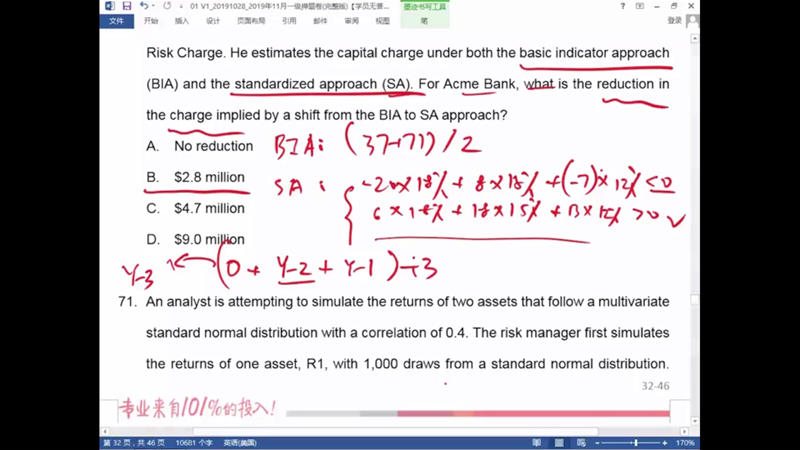 01 V1_20191028_2019年11月一级押题卷(完整版)【学员无答...
墨迹书写工具
文件 开始 插入 设计 页面布局 引用 邮件 审阅 视图 笔
登录
Risk Charge. He estimates the capital charge under both the basic indicator approach
(BIA) and the standardized approach (SA). For Acme Bank, what is the reduction in
the charge implied by a shift from the BIA to SA approach?
A. No reduction
BIA: (37+71)/2
B. $2.8 million
SA: -20×18% + 8×15% + (-7)×12% <0
C. $4.7 million
6×18% + 18×15% + 13×12% >0 ✓
D. $9.0 million
Y-3 (0 + Y-2 + Y-1) ÷3
71. An analyst is attempting to simulate the returns of two assets that follow a multivariate
standard normal distribution with a correlation of 0.4. The risk manager first simulates
the returns of one asset, R1, with 1,000 draws from a standard normal distribution.
32-46
专业来自101%的投入!
第 32 页，共 46 页 10681 个字 英语(美国) 170%